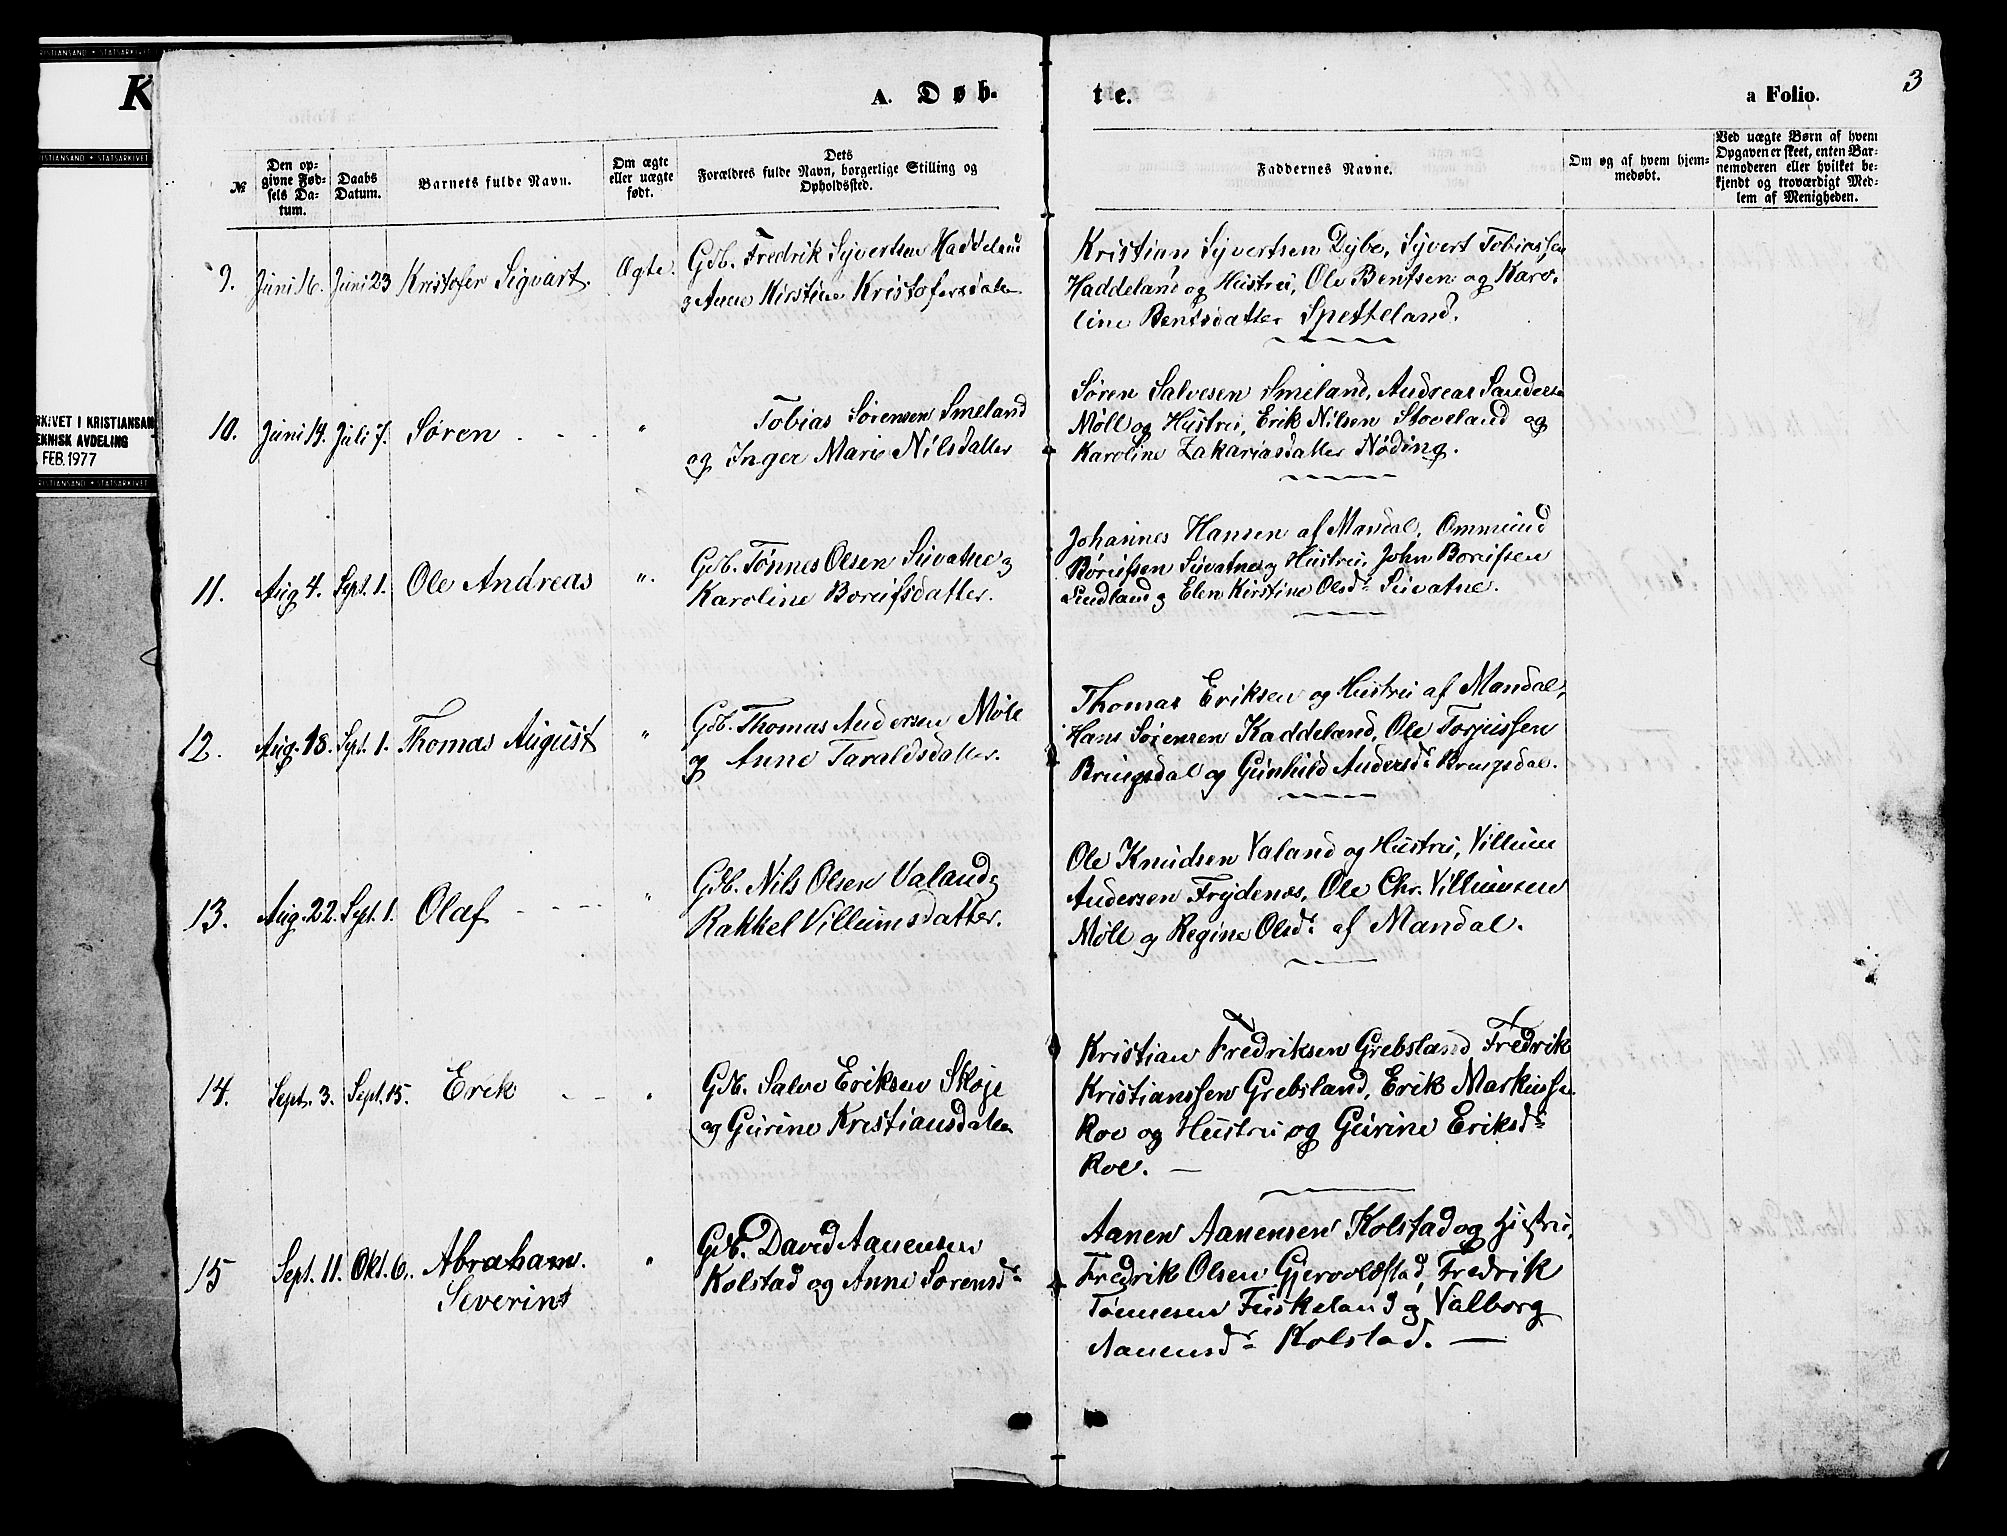 KRISTIANSAND • STATSARKIVET
K
KRISTIANSAND • STATSARKIVET
ARKIVET I KRISTIANSAN
TEKNISK AVDELING
FEB. 1977
KRISTIANSAND • STATSARKIVET
A. Døb-
te.
a Folio.
3
№
Den op-
givne Fød-
sels Da-
tum.
Daabs
Datum.
Barnets fulde Navn.
Om ægte
eller uægte
født.
Dets
Forældres fulde Navn, borgerlige Stilling og
Opholdssted.
Faddernes Navne.
Om og af hvem hjem-
medøbt.
Ved uægte Børn af hvem
Opgaven er skeet, enten Bar-
nemoderen eller hvilket be-
kjendt og troværdigt Med-
lem af Menigheden.
9. Juni 16. Juni 23 Kristofer Sigvart. Ægte.
Gdb. Fredrik Syvertsen Haddeland
og Anne Kirstine Kristofersdatter
Kristian Syvertsen Dybo, Syvert Tobiassen
Haddeland og Hustru, Ole Bentsen og Karo-
line Bentsdatter Spetteland.
10. Juni 14. Juli 7. Søren - - - "
Tobias Sørensen Smeland
og Inger Marie Nilsdatter
Søren Salvesen Smeland, Andreas Sandersen
Møll og Hustru, Erik Nilsen Stoveland og
Karoline Zakariasdatter Nøding.
11. Aug 4. Sept. 1. Ole Andreas ".
Gdb. Tønnes Olsen Suvatne og
Karoline Borufsdatter.
Johannes Hansen af Mandal, Ommund
Borufsen Suvatne og Hustru, John Borufsen
Sundland og Elen Kirstine Olsdr Suvatne.
12. Aug. 18. Sept. 1. Thomas August "
Gdb. Thomas Andersen Møll
og Anne Taraldsdatter.
Thomas Eriksen og Hustru af Mandal,
Hans Sørensen Kaddeland, Ole Torjussen
Brungsdal og Gunhild Andersdr Brungsdal.
13. Aug. 22. Sept. 1. Olaf - - - "
Gdb. Nils Olsen Valand og
Rakkel Villumsdatter.
Ole Knudsen Valand og Hustru, Villum
Andersen Frydenæs, Ole Chr. Villumsen
Møll og Regine Olsdr af Mandal.
14. Sept. 3. Sept. 15. Erik - - "
Gdb. Salve Eriksen Skøje
og Gurine Kristiansdatter
Kristian Fredriksen Grebsland, Fredrik
Kristianssen Grebsland, Erik Markussen
Roe og Hustru og Gurine Eriksdr
Roe. —
15 Sept. 11. Okt. 6. Abraham "
Severin
Gdb. David Aanensen
Kolstad og Anne Sørensdr
Aanen Aanensen Kolstad og Hustru,
Fredrik Olsen Gjervoldstad, Fredrik
Tønnesen Fuskeland og Valborg
Aanensdr Kolstad. —